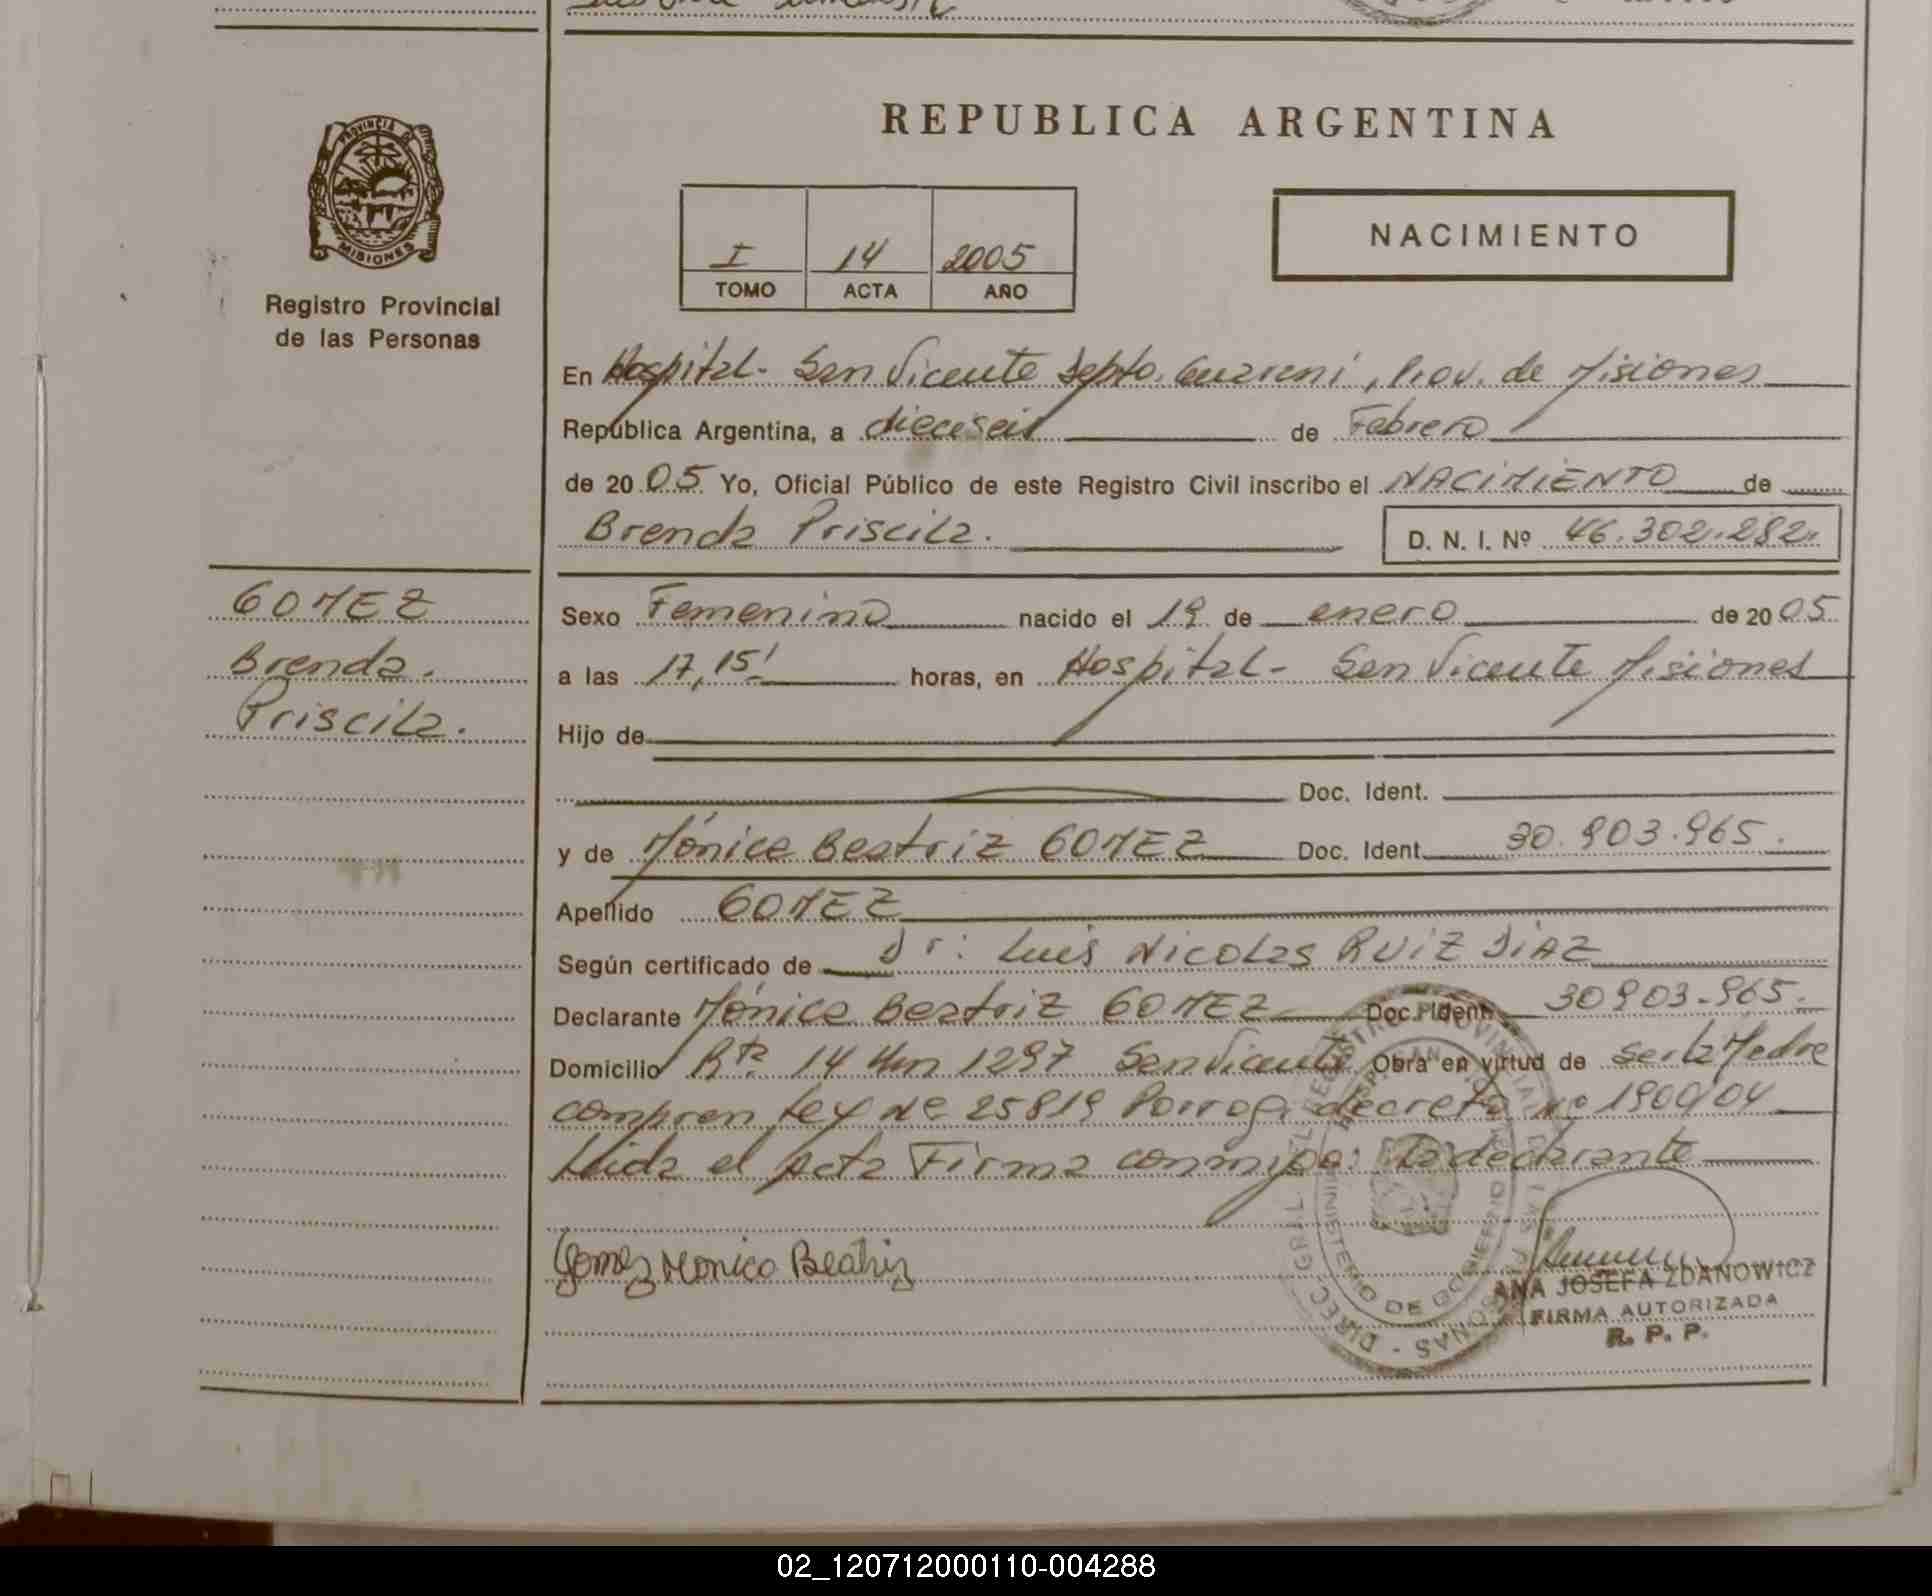 REPUBLICA ARGENTINA
PROVINCIA DE
MISIONES
Registro Provincial
de las Personas
I 14 2005
TOMO ACTA AÑO
NACIMIENTO
En Hospital- San Vicente Depto. Guaraní, Prov. de Misiones
República Argentina, a dieciseis de Febrero
de 2005 Yo, Oficial Público de este Registro Civil inscribo el NACIMIENTO de
Brenda Priscila. D. N. I. Nº 46.302.282.
GOMEZ
Brenda.
Priscila.
Sexo Femenino nacido el 19 de enero de 2005
a las 17,15' horas, en Hospital- San Vicente Misiones
Hijo de
Doc. Ident.
y de Mónica Beatriz GOMEZ Doc. Ident. 30.903.965.
Apellido GOMEZ
Según certificado de Dr: Luis Nicolas RUIZ DIAZ
Declarante Mónica Beatriz GOMEZ Doc. Ident. 30903.965.
Domicilio Rta. 14 Km 1297 San Vicente Obra en virtud de ser la Madre
Ley 25819 decreto nº 1900/04
Leida el Acta Firma conmigo: la declarante
Gomez Monica Beatriz
ANA JOSEFA ZDANOWICZ
FIRMA AUTORIZADA
R. P. P.
MINISTERIO DE GOBIERNO
02_120712000110-004288